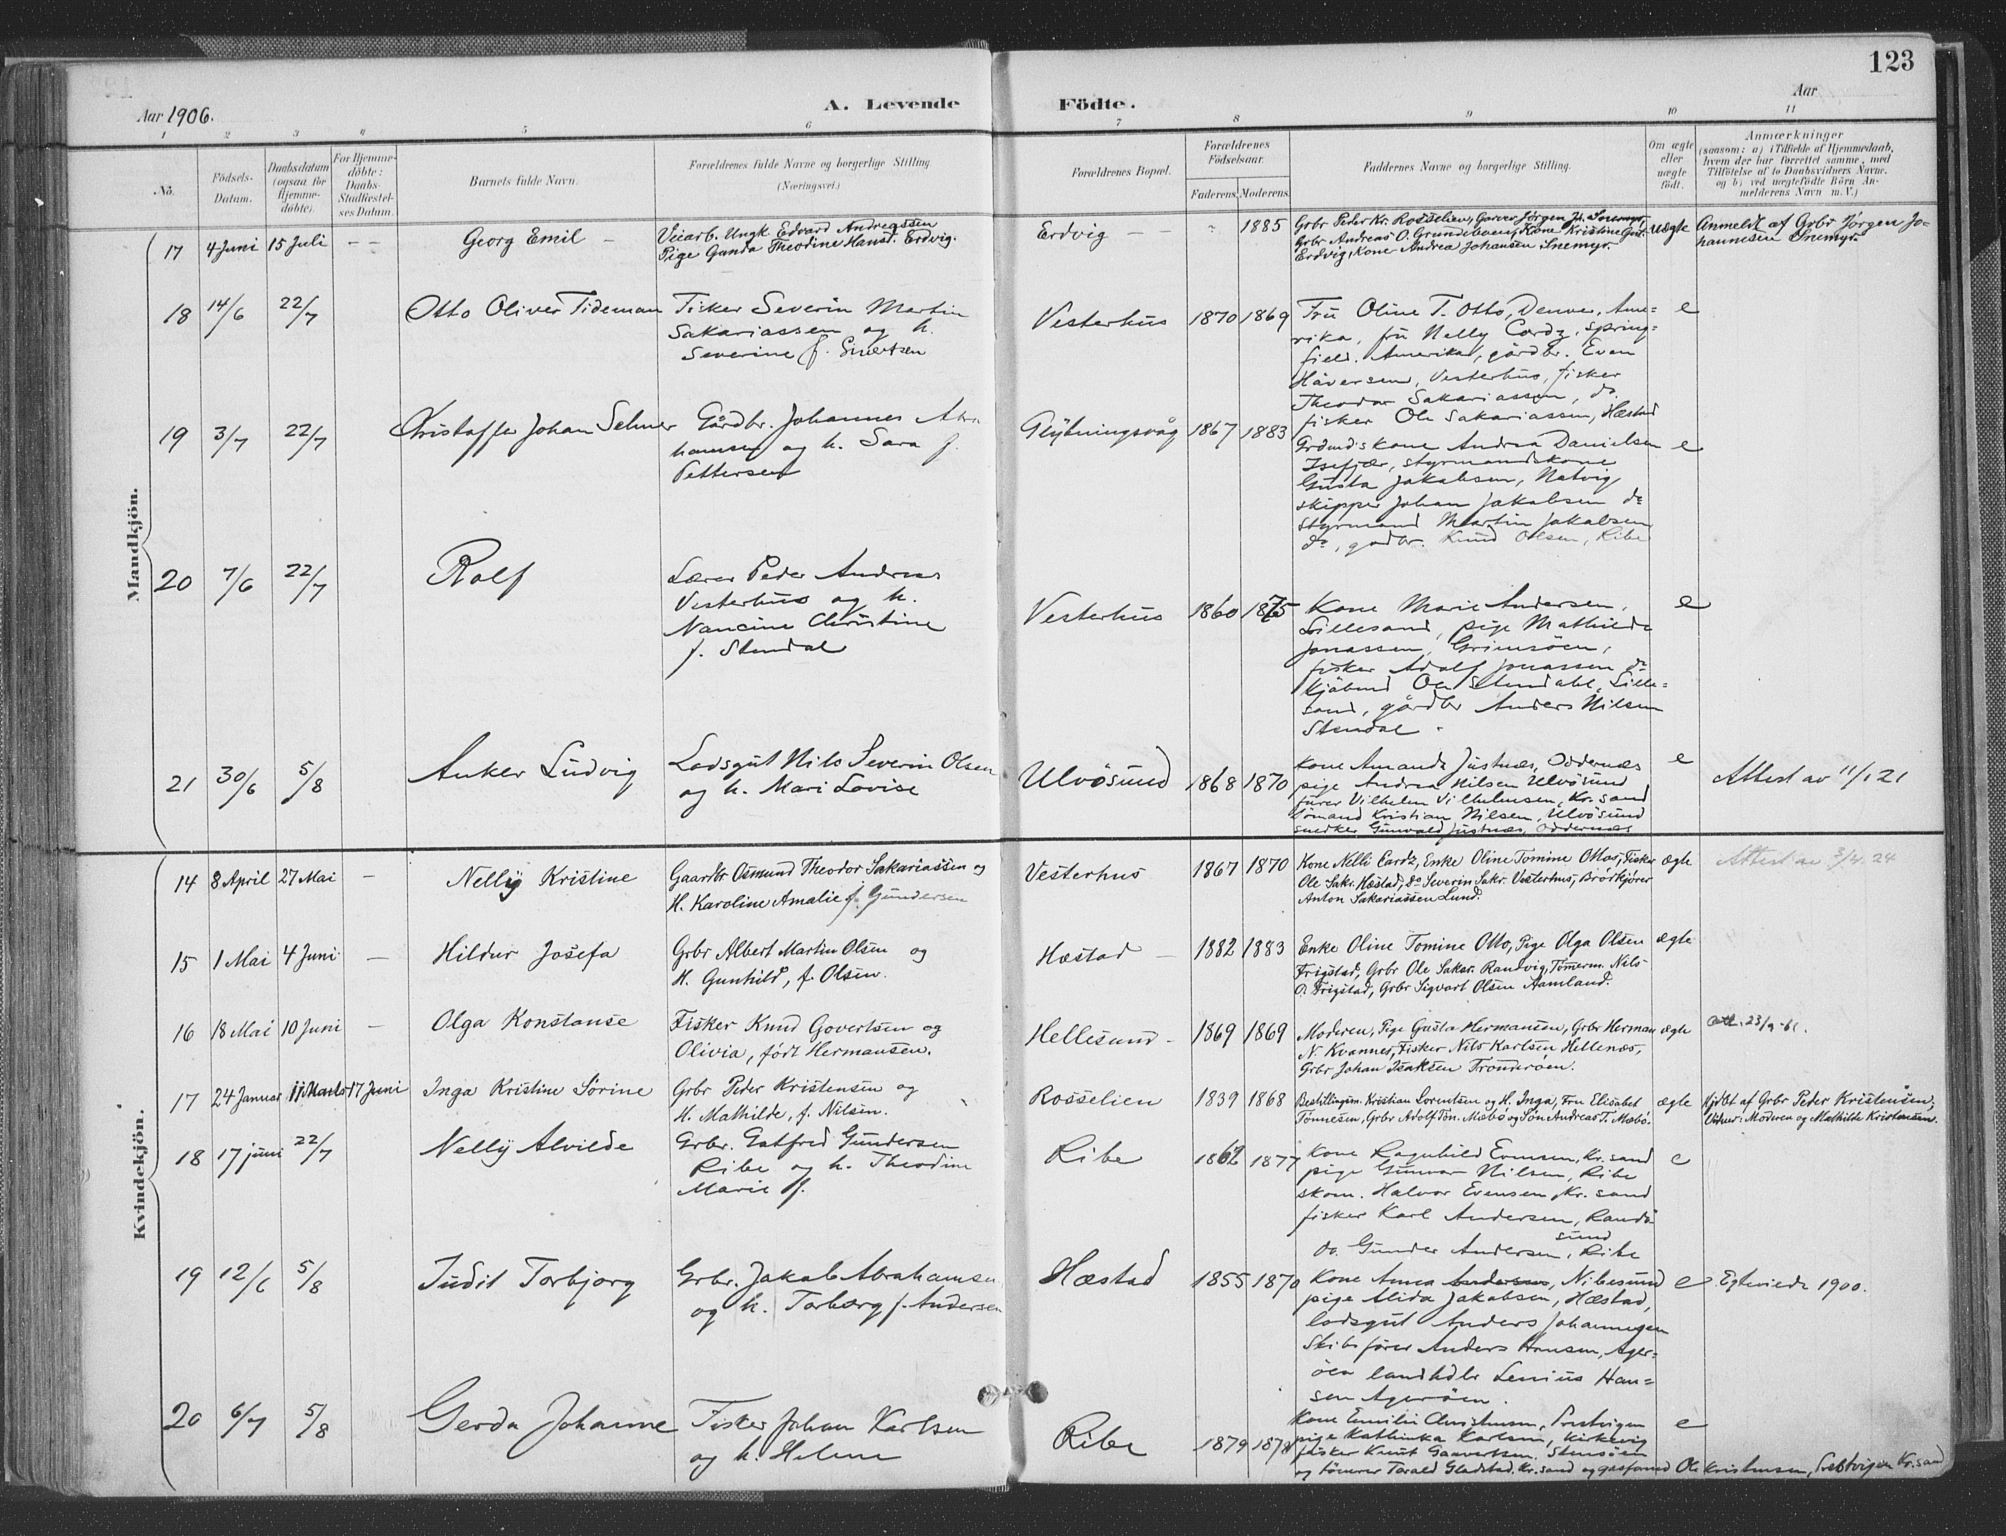 123
Aar 1906.
A. Levende
Födte.
Aar
1 2 3 4 5 6 7 8 9 10 11
No.
Födsels-Datum.
Daabsdatum (ogsaa for Hjemme-döbte).
For Hjemme-döbte: Daabs-Stadfæstel-ses Datum.
Barnets fulde Navn.
Forældrenes fulde Navne og borgerlige Stilling
(Næringsvei.)
Forældrenes Bopæl.
Forældrenes Födselsaar.
Faderens. Moderens.
Faddernes Navne og borgerlige Stilling.
Om ægte eller uægte födt.
Anmærkninger
(saasom: a) i Tilfælde af Hjemmedaab,
hvem der har forrettet samme, med
Tilföielse af to Daabsvidners Navne.
og b) ved uægtefödte Börn An-
melderens Navn m. V.)
Mandkjön.
17 4 Juni 15 Juli - - Georg Emil -
Veiarb. Ungk Edvard Andreassen
Pige Gunda Theodine Hansd. Erdvig.
Erdvig - - 1885
Grbr Peder Kr. Rosselien, Garver Jørgen Js. Snemyr,
Grbr Andreas O. Kone Kristine
Erdvig, Kone Andrea Johansen Snemyr.
uægte
Anmeldt af Grbr Jørgen Jo-
hannesen Snemyr.
18 14/6 22/7 Otto Oliver Tideman
Fisker Severin Martin
Sakariassen og h.
Severine f.
Vesterhus 1870 1869
Fru Oline T. Otto, Denver, Ame-
rika, fru Nelly Cardz, Spring=
field. Amerika, gårdbr. Even
Håversen, Vesterhus, fisker
Theodor Sakariassen, do
fisker Ole Sakariassen, Hæstad
e
19 3/7 22/7 Kristoffer Johan Selmer
Gårdbr. Johannes Abra
hamsen og h. Sara f.
Pettersen
1867 1883
Grdmdskone Andrea Danielsen
Isefjær, styrmandskone
Gusta Jakobsen, Natvig
skipper Johan Jakobsen do
styrmand Martin Jakobsen
do, gårdbr. Knud Olsen, Ribe
e
20 7/6 22/7 Rolf
Lærer Peder Andreas
Vesterhus og h.
Nancine Christine
f. Stendal
Vesterhus 1860 1875
Kone Marie Andersen,
Lillesand, pige Mathilde
Jonassen, Grimsøen,
fisker Adolf Jonassen do
kjøbmd Ole Stendahl, Lille=
sand, gårdbr Anders Nilsen
Stendal.
e
21 30/6 5/8 Anker Ludvig
Lodsgut Nils Severin Olsen
og h. Mari Lovise
Ulvösund 1868 1870
Kone Amanda Justnæs, Oddernæs
pige Andrea Nilsen Ulvösund
fürer Vilhelm Vilhelmsen, Kr.sand
sömand Kristian Nilsen, Ulvösund
snedker Gunvald Justnæs, Oddernæs
e
Attest av 11/1 21
Kvindekjön.
14 8 April 27 Mai - Nelly Kristine
Gaardbr Osmund Theodor Sakariassen og
H. Karoline Amalie f. Gundersen
Vesterhus 1867 1870
Kone Nelli Cardz, Enke Oline Tomine Ottos, Fisker
Ole Sakr. Hæstad, do Severin Sakr. Vesterhus, Brödkjörer
Anton Sakariassen Lund.
ægte
Attest av 3/4 24
15 1 Mai 4 Juni - Hildur Josefa
Grbr Albert Martin Olsen og
H. Gunhild, f. Olsen.
Hæstad - 1882 1883
Enke Oline Tomine Otto, Pige Olga Olsen
Frigstad, Grbr Ole Sakar. Randvig, Tömerm. Nils
O. Frigstad, Grbr Sigvart Olsen Aamland.
ægte
16 18 Mai 10 Juni - Olga Konstanse
Fisker Knud Govertsen og
Olivia, født Hermansen.
Hellesund - 1869 1869
Moderen, Pige Gusta Hermansen, Grbr Herman
N. Kvannes, Fisker Nils Karlsen Hellenæs,
Grbr Johan Isaksen Trönderöen.
ægte
23/9-61.
17 24 Januar 11 Marts 17 Juni Inga Kristine Sörine
Grbr Peder Kristensen og
H. Mathilde, f. Nilsen.
Rosselien 1839 1868
Bestillingsm. Kristian Lorentsen og H. Inga, Fru Elisabet
Tönnesen, Grbr Adolf Tön. Mæbö og Søn Andreas T. Mæbö.
ægte
Hjdbt af Grbr Peder Kristensen,
Vidner: Moderen og Mathilde Kristensen.
18 17 juni 22/7 Nelly Alvilde
Grbr. Gotfred Gundersen
Ribe og h. Theodine
Marie f.
Ribe 1862 1877
Kone Ragnhild Evensen, Kr. sand
pige Gunvor Nilsen, Ribe
skom. Halvor Evensen, Kr. sand
fisker Karl Andersen, Randö
sund
do. Gunder Andersen, Ribe
e
19 12/6 5/8 Judit Torbjorg
Grbr. Jakob Abrahamsen
og h. Torborg f. Andersen
Hæstad 1855 1870
Kone Anna Andersen, Nibesund
pige Alida Jakobsen, Hæstad,
lodsgut Anders Johannesen
Skibsförer Anders Hansen, Ager=
öen landhdlr Lenius Han=
sen Ageröen.
e
Egteviede 1900.
20 6/7 5/8 Gerda Johanne
Fisker Johan Karlsen
og h. Helene
Ribe 1879 1878
Kone Emilie Christensen, Prestvigen
pige Kathinka Karlsen, Kirkevig
fisker Knut Gaavertsen Stensöen
og tömrer Torald Gladstad, Kr. sand og Ole Kristensen, Prestvigen Kr.sand
e